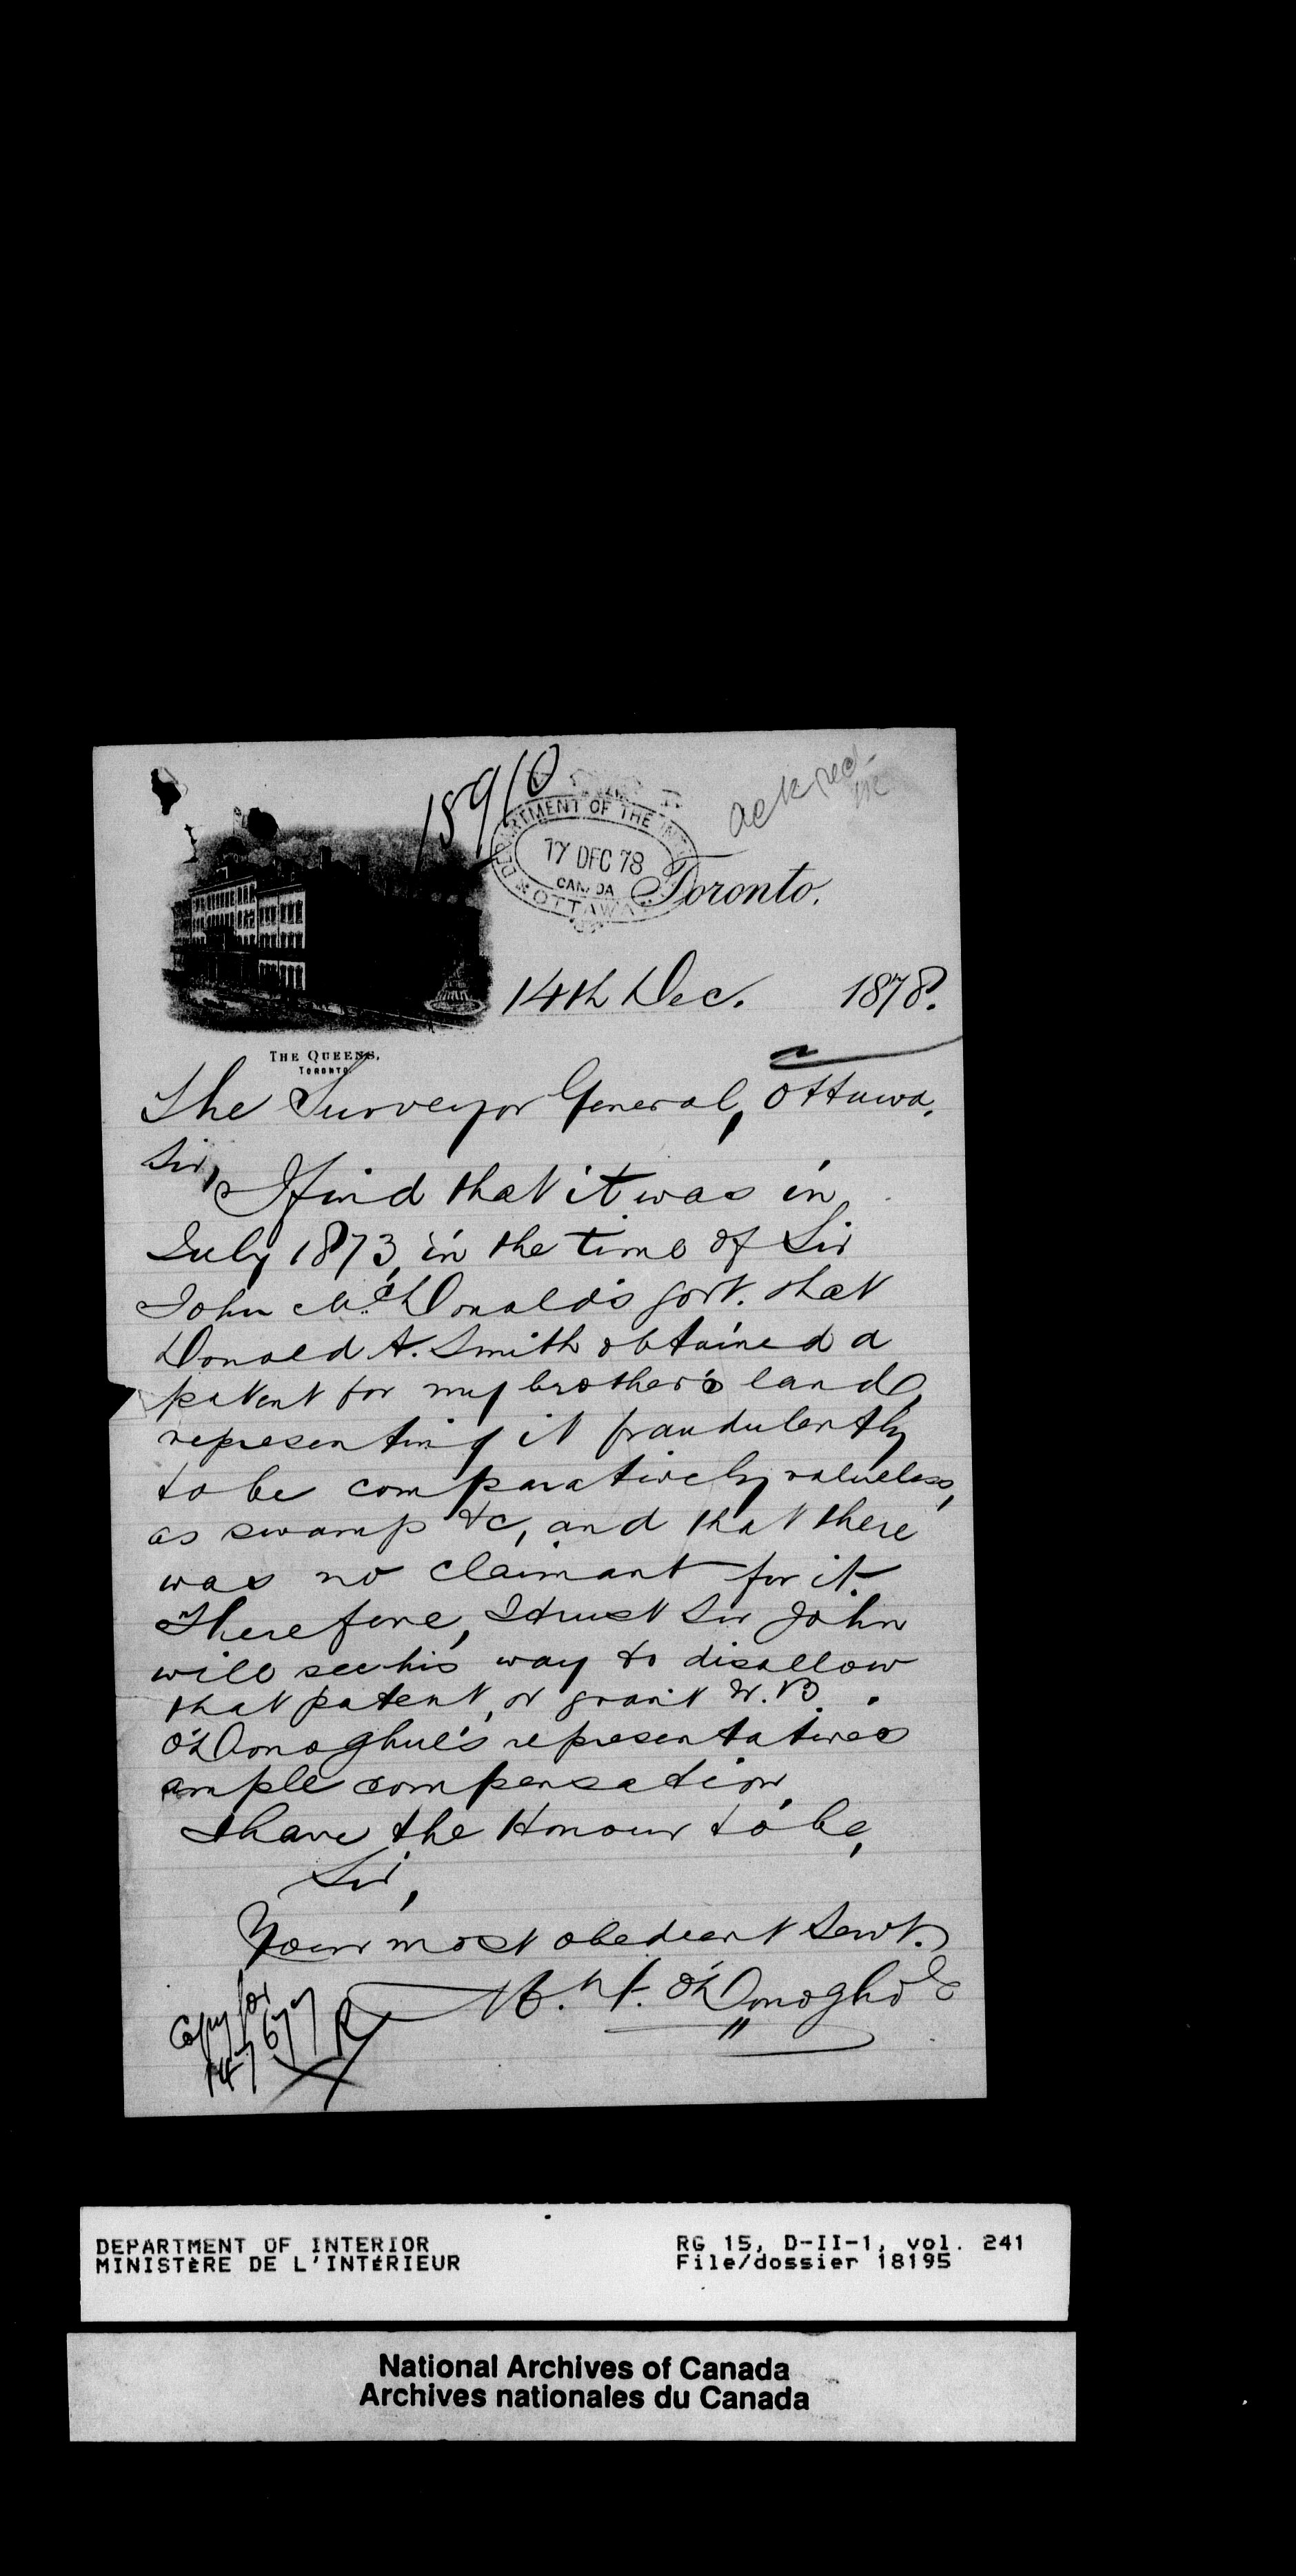 18910
ack red.
DEPARTMENT OF THE INT
17 DEC 78
CANADA
OTTAWA
Toronto.
14th Dec. 1878.
THE QUEENS,
TORONTO.
The Surveyor General, Ottawa.
Sir,
I find that it was in
July 1873, in the time of Sir
John McDonald's govt. that
Donald A. Smith obtained a
patent for my brother's land,
representing it fraudulently
to be comparatively valueless,
as swamp &c, and that there
was no claimant for it.
Therefore, I trust Sir John
will see his way to disallow
that patent, or grant W. B.
O'Donoghue's representatives
ample compensation.
I have the Honour to be,
Sir,
Your most obedient Servt.
O'Donoghue
Copy for
147677
DEPARTMENT OF INTERIOR
MINISTÈRE DE L'INTÉRIEUR
RG 15, D-II-1, vol. 241
File/dossier 18195
National Archives of Canada
Archives nationales du Canada